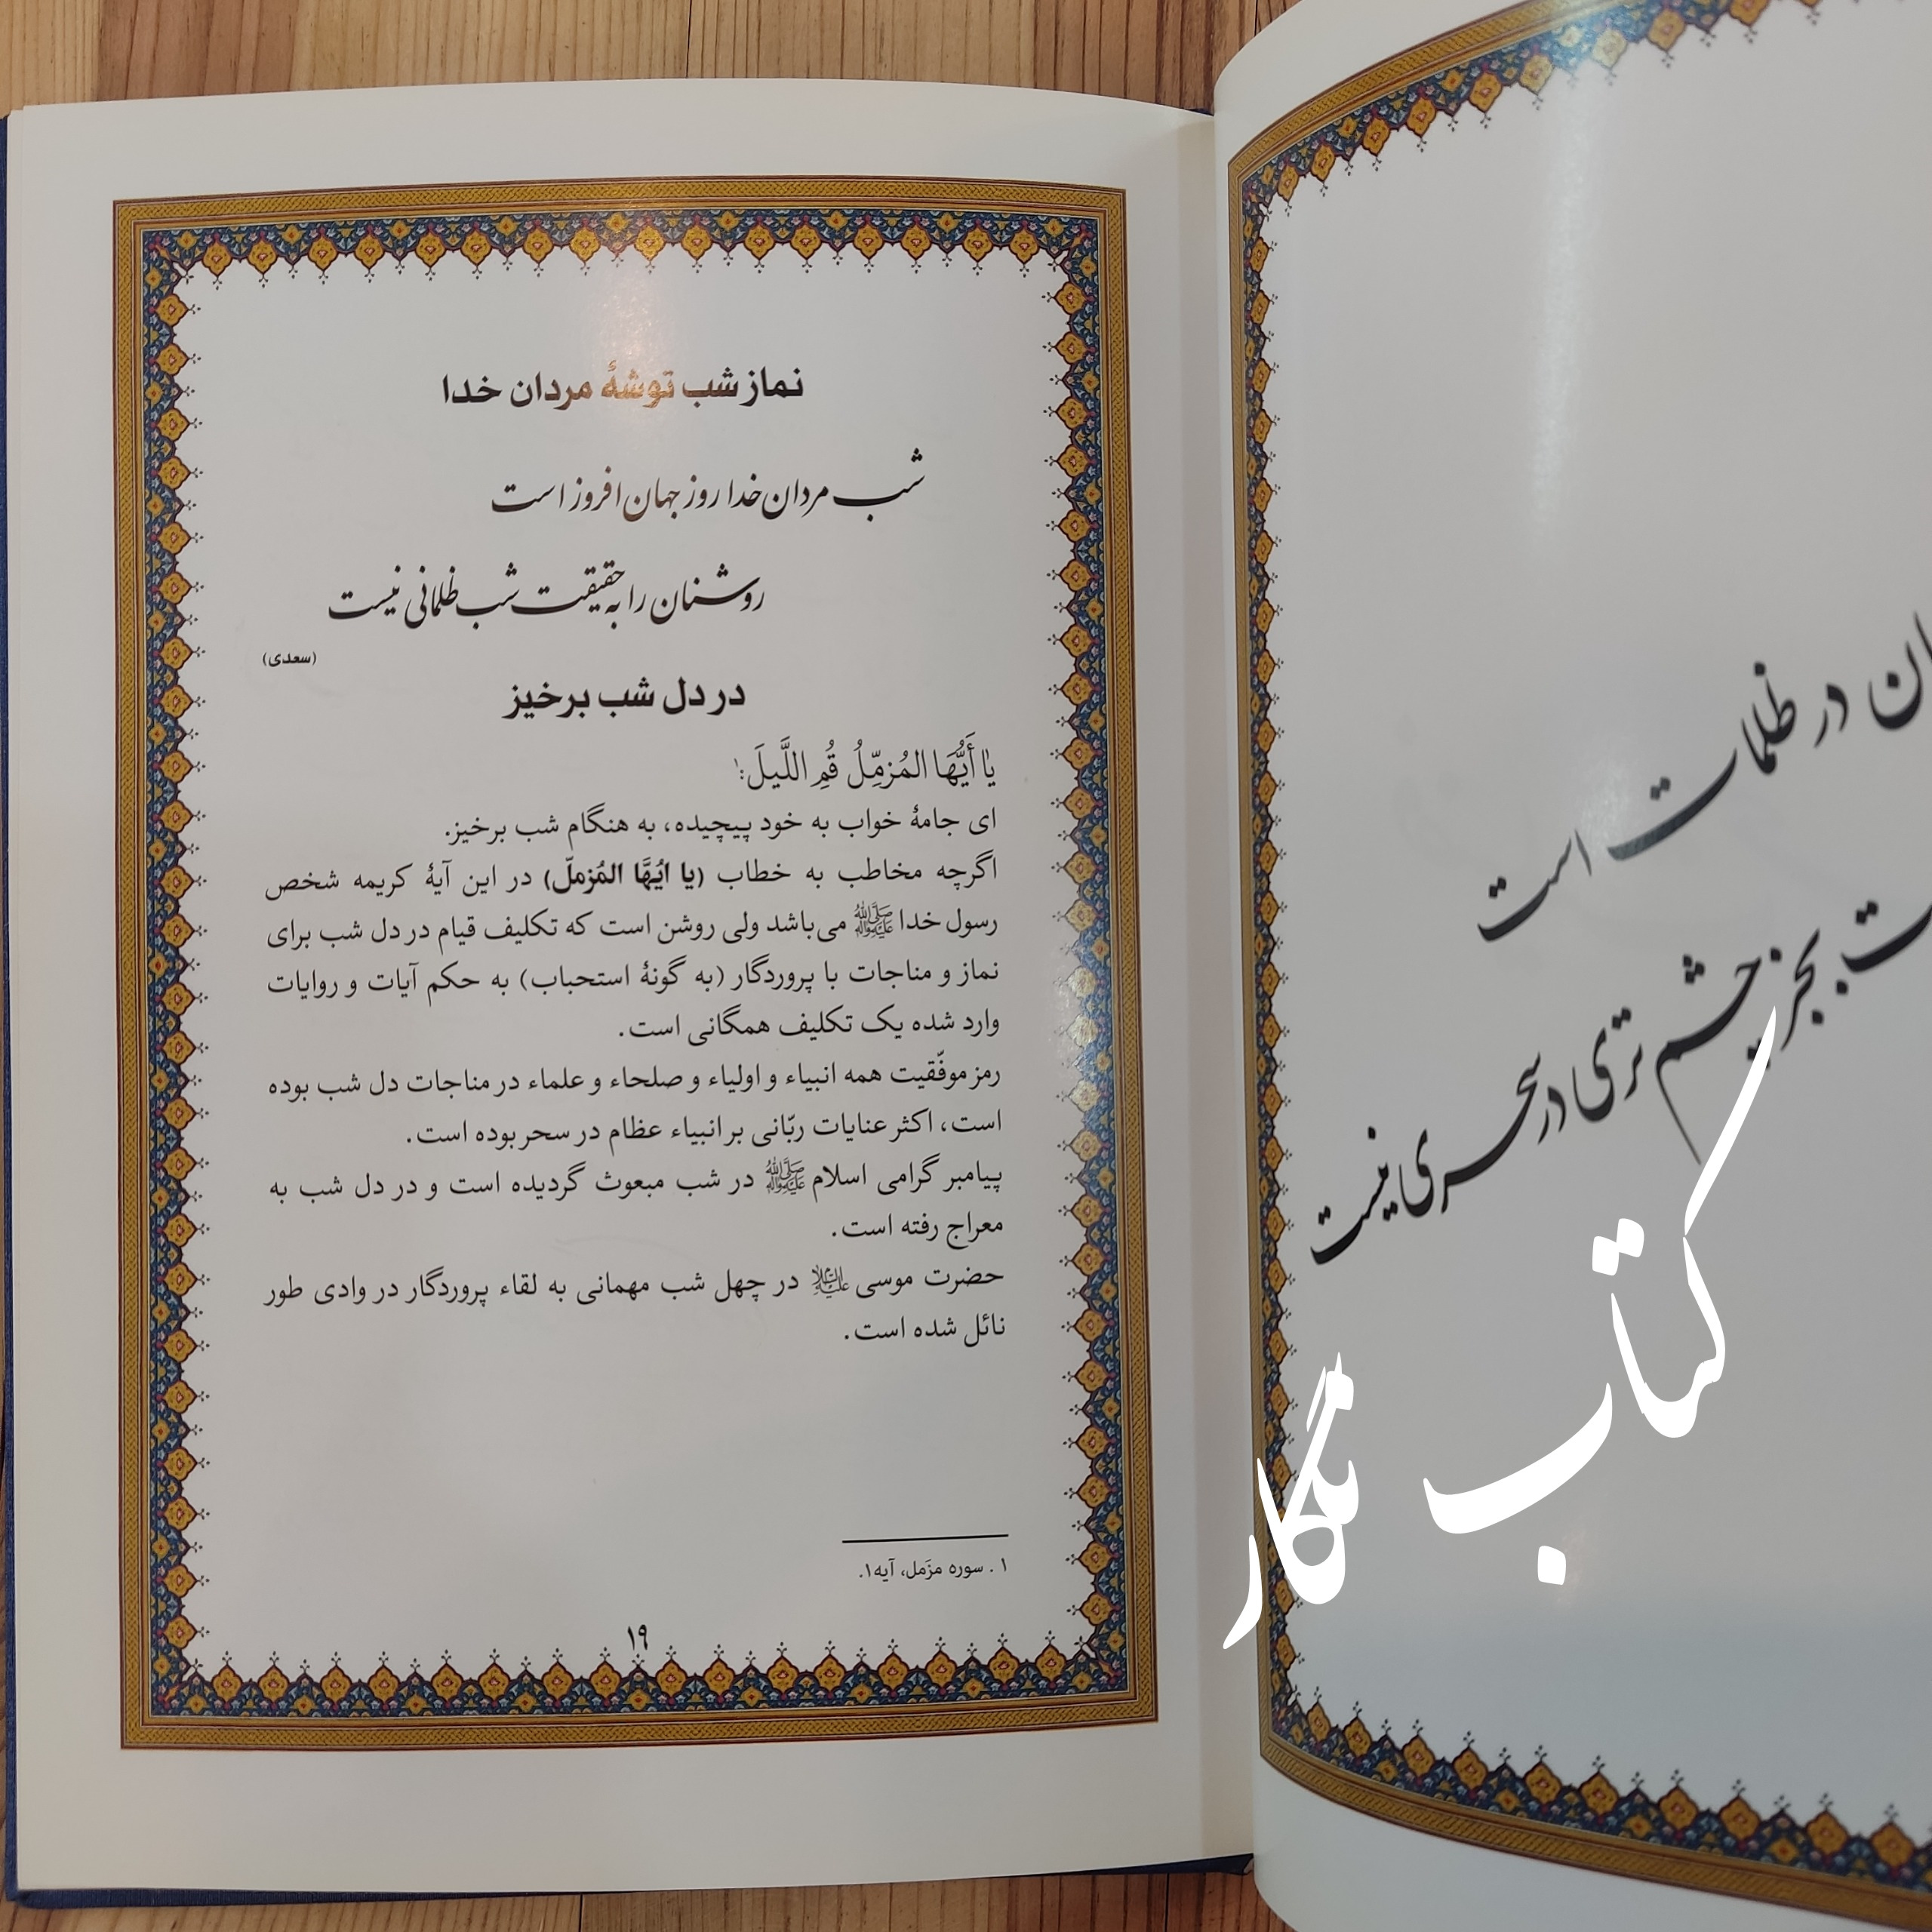 ان در ظلمات است
ت بجز چشم تری در سحری نیست
کتاب نگار
نماز شب توشهٔ مردان خدا
شب مردان خدا روز جهان افروز است
روشنان را به حقیقت شب ظلمانی نیست
(سعدی)
در دل شب برخیز
یٰا أَیُّهَا المُزمِّلُ قُمِ اللَّیلَ؛۱
ای جامهٔ خواب به خود پیچیده، به هنگام شب برخیز.
اگرچه مخاطب به خطاب (یا ایُهَّا المُزملّ) در این آیهٔ کریمه شخص
رسول خدا ﷺ می‌باشد ولی روشن است که تکلیف قیام در دل شب برای
نماز و مناجات با پروردگار (به گونهٔ استحباب) به حکم آیات و روایات
وارد شده یک تکلیف همگانی است.
رمز موفّقیت همه انبیاء و اولیاء و صلحاء و علماء در مناجات دل شب بوده
است، اکثر عنایات ربّانی بر انبیاء عظام در سحر بوده است.
پیامبر گرامی اسلام ﷺ در شب مبعوث گردیده است و در دل شب به
معراج رفته است.
حضرت موسی علیه‌السلام در چهل شب مهمانی به لقاء پروردگار در وادی طور
نائل شده است.
۱ . سوره مزّمل، آیه۱.
۱۹